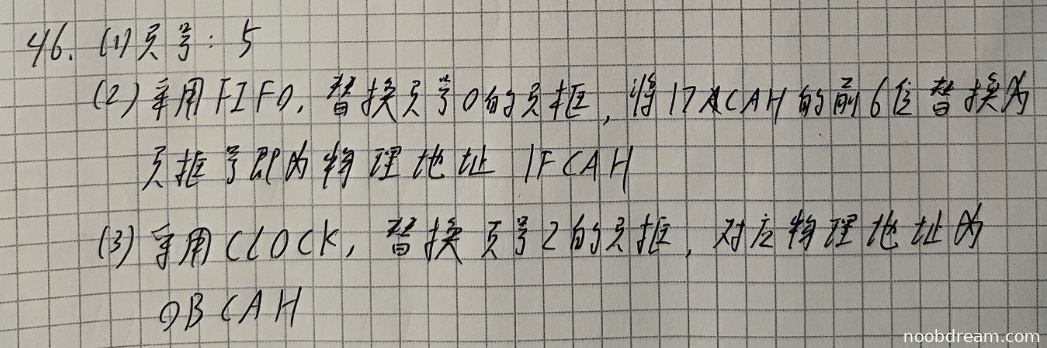 46. (1) 页号: 5
(2) 采用FIFO, 替换页号0的页框, 将17CAH的前6位替换为
页框号即为物理地址 1FCAH
(3) 采用CLOCK, 替换页号2的页框, 对应物理地址为
0BCAH
noobdream.com